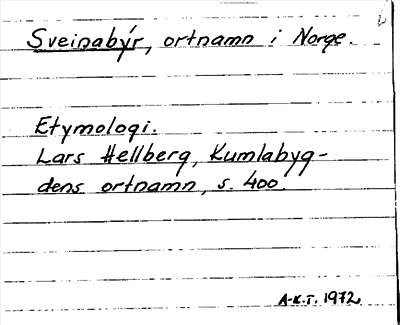 Sveinabýr, ortnamn i Norge.
Etymologi.
Lars Hellberg, Kumlabyg-
dens ortnamn, s. 400.
A-K.T. 1972